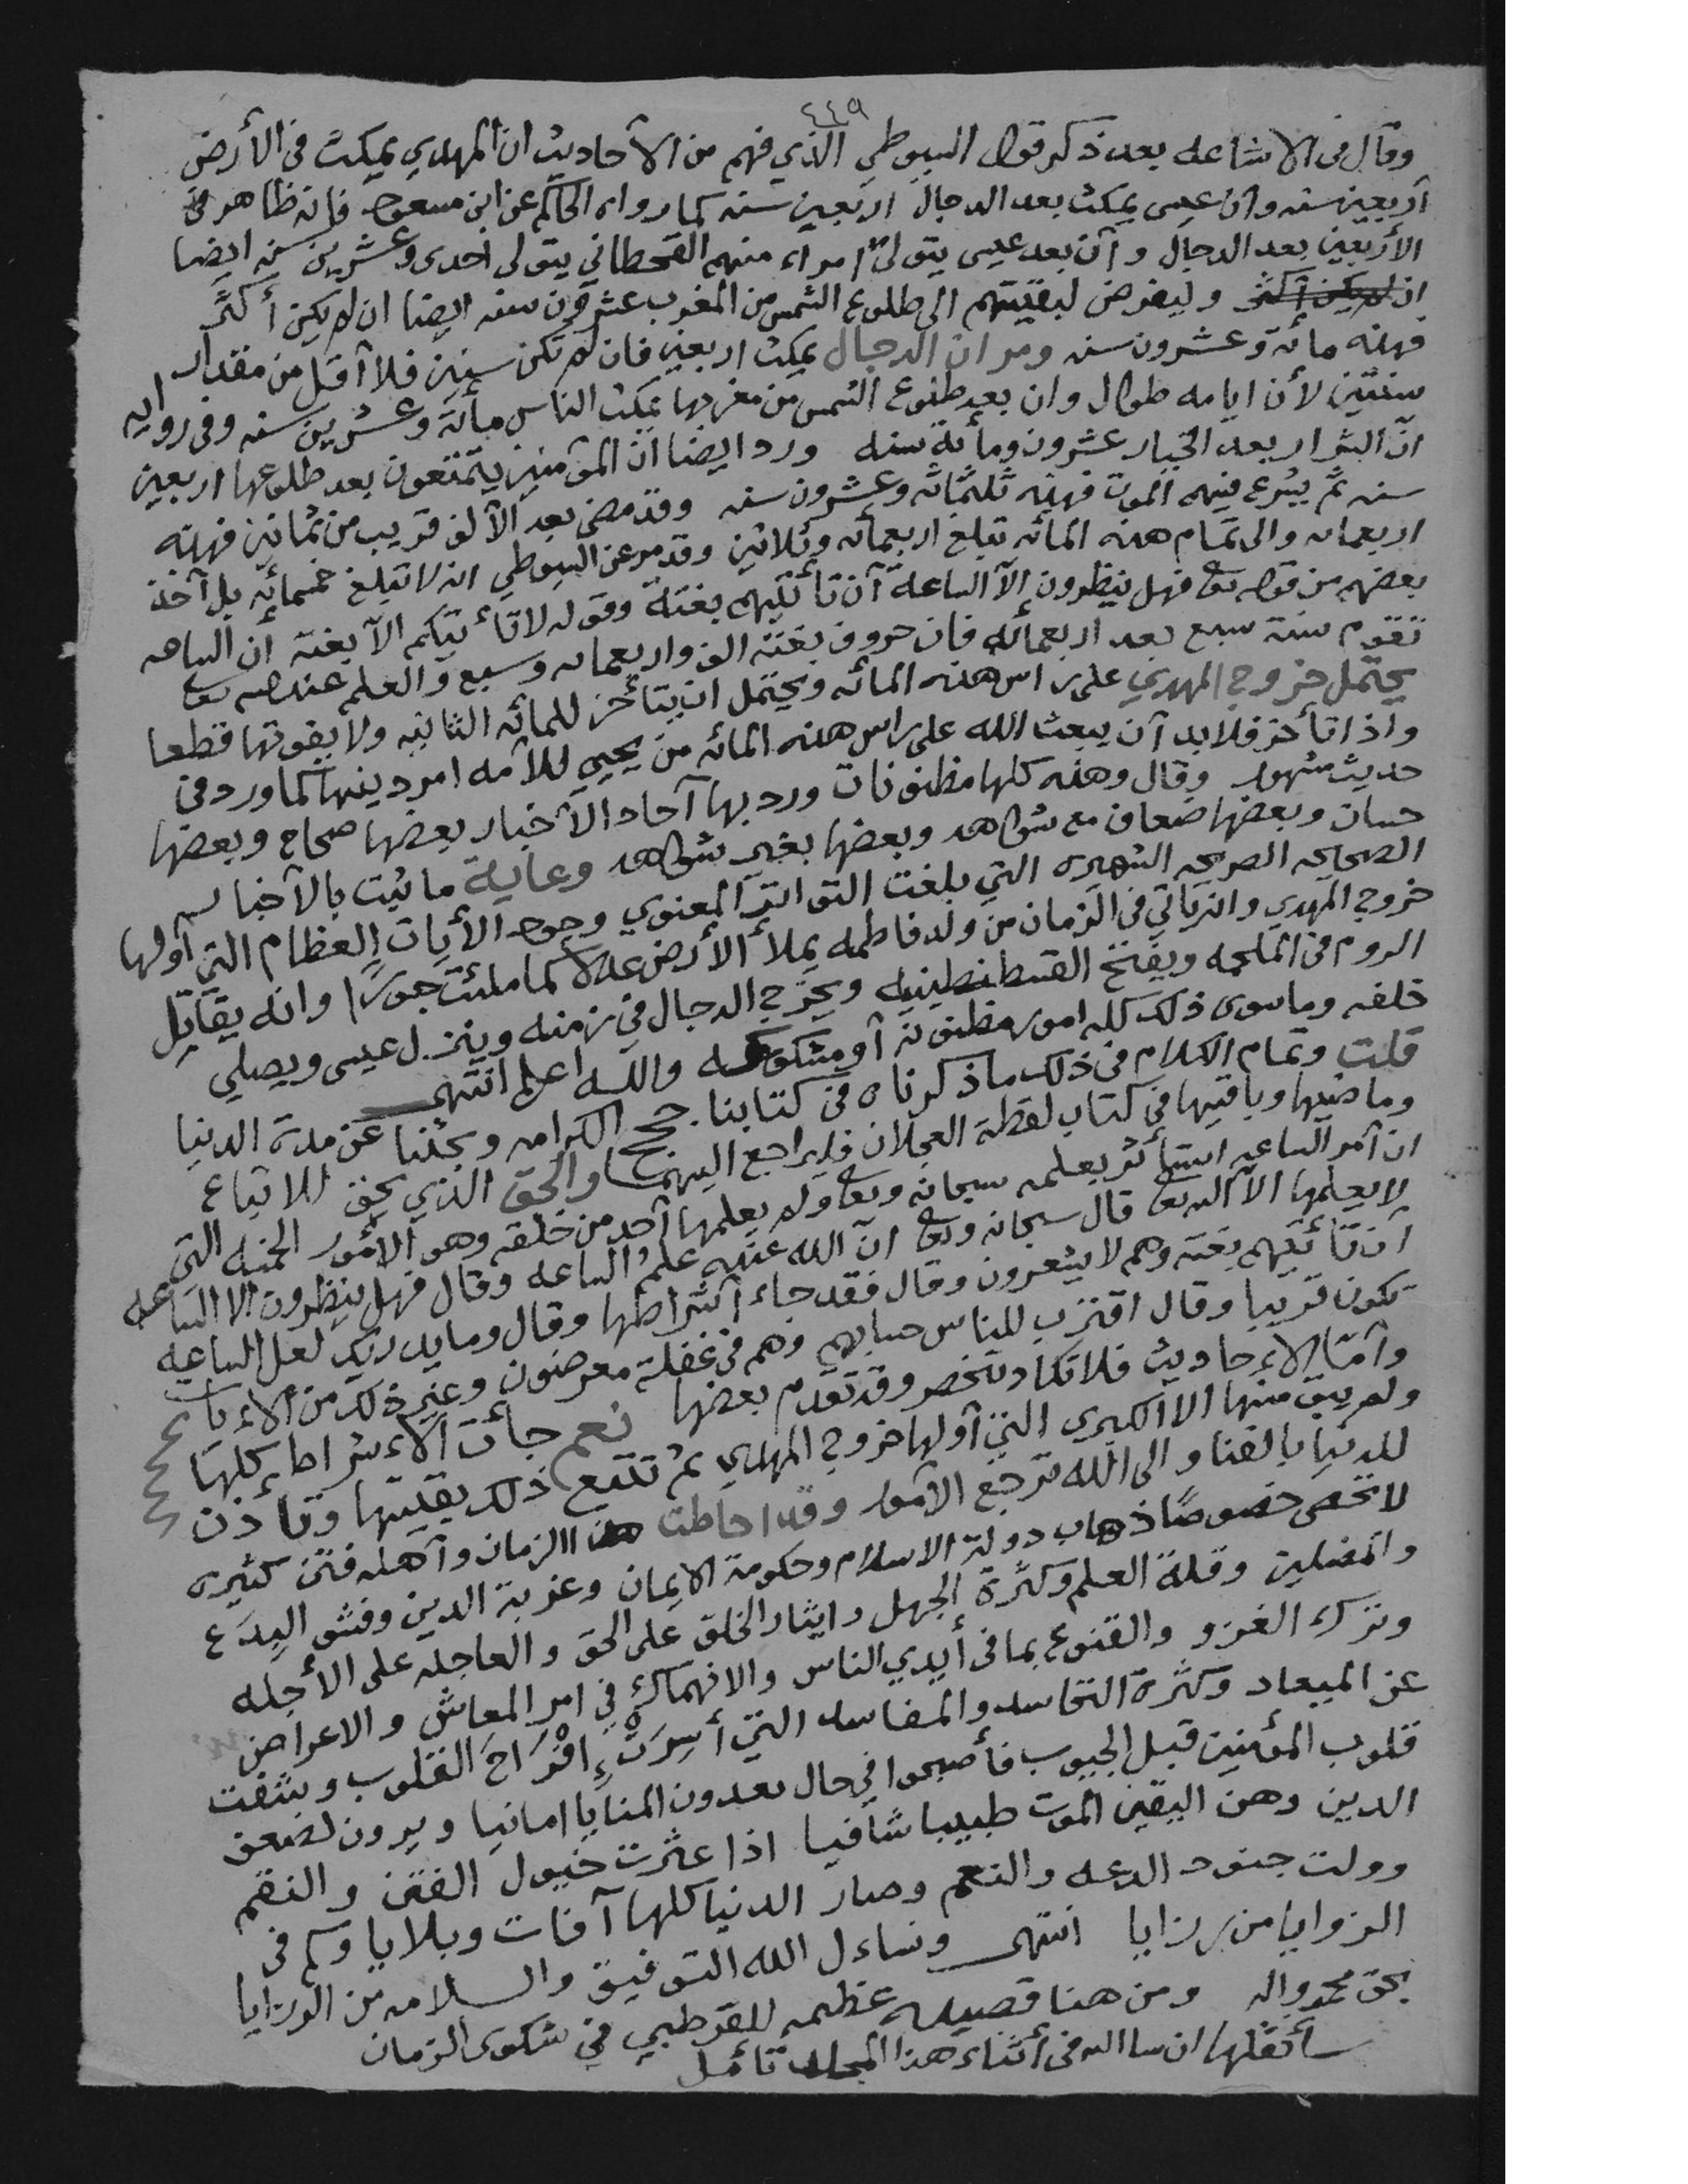 ٤٤٩
وقال في الاشاعه بعد ذكر قول السيوطي الذي فهم من الآحاديث ان المهدي يمكث في الأرض
آربعين سنه وان عيسى يمكث بعد الدجال اربعين سنه كما رواه الحاكم عن ابن مسعود فإنه ظاهر في
الأربعين بعد الدجال و آن بعد عيسى يتولى امراء منهم القحطاني يتولى احدى وعشرين سنه ايضا
ان لم يكن آكثر وليفرض لبقيتهم الى طلوع الشمس من المغرب عشرون سنه ايضا ان لم يكن أكثر
فهذه مائة وعشرون سنه ومر ان الدجال يمكث اربعين فان لم تكن سنين فلا آقل من مقدار
سنتين لأن ايامه طوال وان بعد طلوع الشمس من مغربها يمكث الناس مأئة وعشرين سنه وفي روايه
انّ الشرار بعد الخيار عشرون ومأئة سنه ورد ايضا ان المؤمنين يتمتعون بعد طلوعها اربعين
سنه ثم يسرع فيهم الموت فهذه ثلثمائه وعشرون سنه وقد مضى بعد الآلف قريب من ثمانين فهذه
اربعمائه والى تمام هذه المائه تبلغ اربعمائه وثلاثين وقد مر عن السيوطي انه لا تبلغ خمسمائه بل آخذ
بعضهم من قوله تع فهل ينظرون الآ الساعة آن تأتيهم بغتة وقوله لا تأتيكم الآ بغتة ان الساعه
تقوم سنة سبع بعد اربعمائه فان حروف بغتة الف واربعمائه وسبع والعلم عند الله تع
يحتمل خروج المهدي على راس هذه المائه ويحتمل ان يتأخر للمائه الثانيه ولا يفوتها قطعا
واذا تأخر فلا بد آن يبعث الله على راس هذه المائه من يحيي للآمه امر دينها كما ورد في
حديث مشهور وقال وهذه كلها مظنونات ورد بها آحاد الآخبار بعضها صحاح وبعضها
حسان وبعضها ضعاف مع شواهد وبعضها بغير شواهد وغاية ما ثبت بالآخبار
الصحايحه الصريحه الشهيره التي بلغت التواتر المعنوي وجود الأيات العظام التي آولها
خروج المهدي وانه يأتي في الزمان من ولد فاطمه يملأ الأرض عدلا كما ملئت جورا وانه يقاتل
الروم في الملحمه ويفتح القسطنطينيه ويخرج الدجال في زمنه وينزل عيسى ويصلي
خلفه وما سوى ذلك كله امور مظنونة آو مشكوكه والله اعلم انتهى
قلت وتمام الكلام في ذلك ما ذكرناه في كتابنا حجج الكرامه وبحثنا عن مدة الدنيا
وما ضيها وباقيها في كتاب لقطة العجلان فليراجع اليهما والحق الذي يحق للاتباع
ان آمر الساعه استأثر بعلمه سبحانه وتع ولم يعلمها آحد من خلقه وهو الأمور الخمسه التي
لا يعلمها الآ الله تع قال سبحانه وتع انّ الله عنده علم الساعه وقال فهل ينظرون الا الساعه
آن تأتيهم بغته وهم لا يشعرون وقال فقد جاء آشراطها وقال وما يدريك لعل الساعه
تكون قريبا وقال اقترب للناس حسابهم وهم في غفلة معرضون وغير ذلك من الأيات
وآمّا الاحاديث فلا تكاد تنحصر وقد تقدم بعضها نعم جائت الاشراط كلها
ولم يبق منها الا الكبرى التي آولها خروج المهدي ثم تتبع ذلك بقيتها وتأذن
للدنيا بالفنا والى الله ترجع الآمور وقد احاطت هذا الزمان وآهله فتن كثيره
لا تحصى خصوصًا ذهاب دولة الاسلام وحكومة الايمان وغربة الدين وفشو البدع
والمضلين وقلة العلم وكثرة الجهل وايثار الخلق على الحق والعاجله على الأجله
وترك الغزو والقنوع بما في أيدي الناس والانهماك في امر المعاش والاعراض
عن الميعاد وكثرة التحاسد والمفاسد التي أسرت افراح القلوب وشقت
قلوب المؤمنين قبل الجيوب فأصبحوا في حال يعدون المنايا امانيا ويرون لضعف
الدين وهن اليقين الموت طبيبا شافيا اذا عثرت خيول الفتن والنقم
وولت جنود الدعه والنعم وصار الدنيا كلها آفات وبلايا وكم في
الزوايا من رزايا انتهى ونساءل الله التوفيق والسلامه من الورزايا
بحق محمد وآله ومن هنا قصيده عظيمه للقرطبي في شكوى الزمان
سأنقلها ان شا الله في أثناء هذا المجلد تأمل